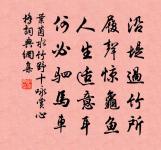 沿堤過竹所
屐聲驚龜魚
人生造意耳
何必駟馬車
葉茵水竹野十咏賞心
待詞典網書